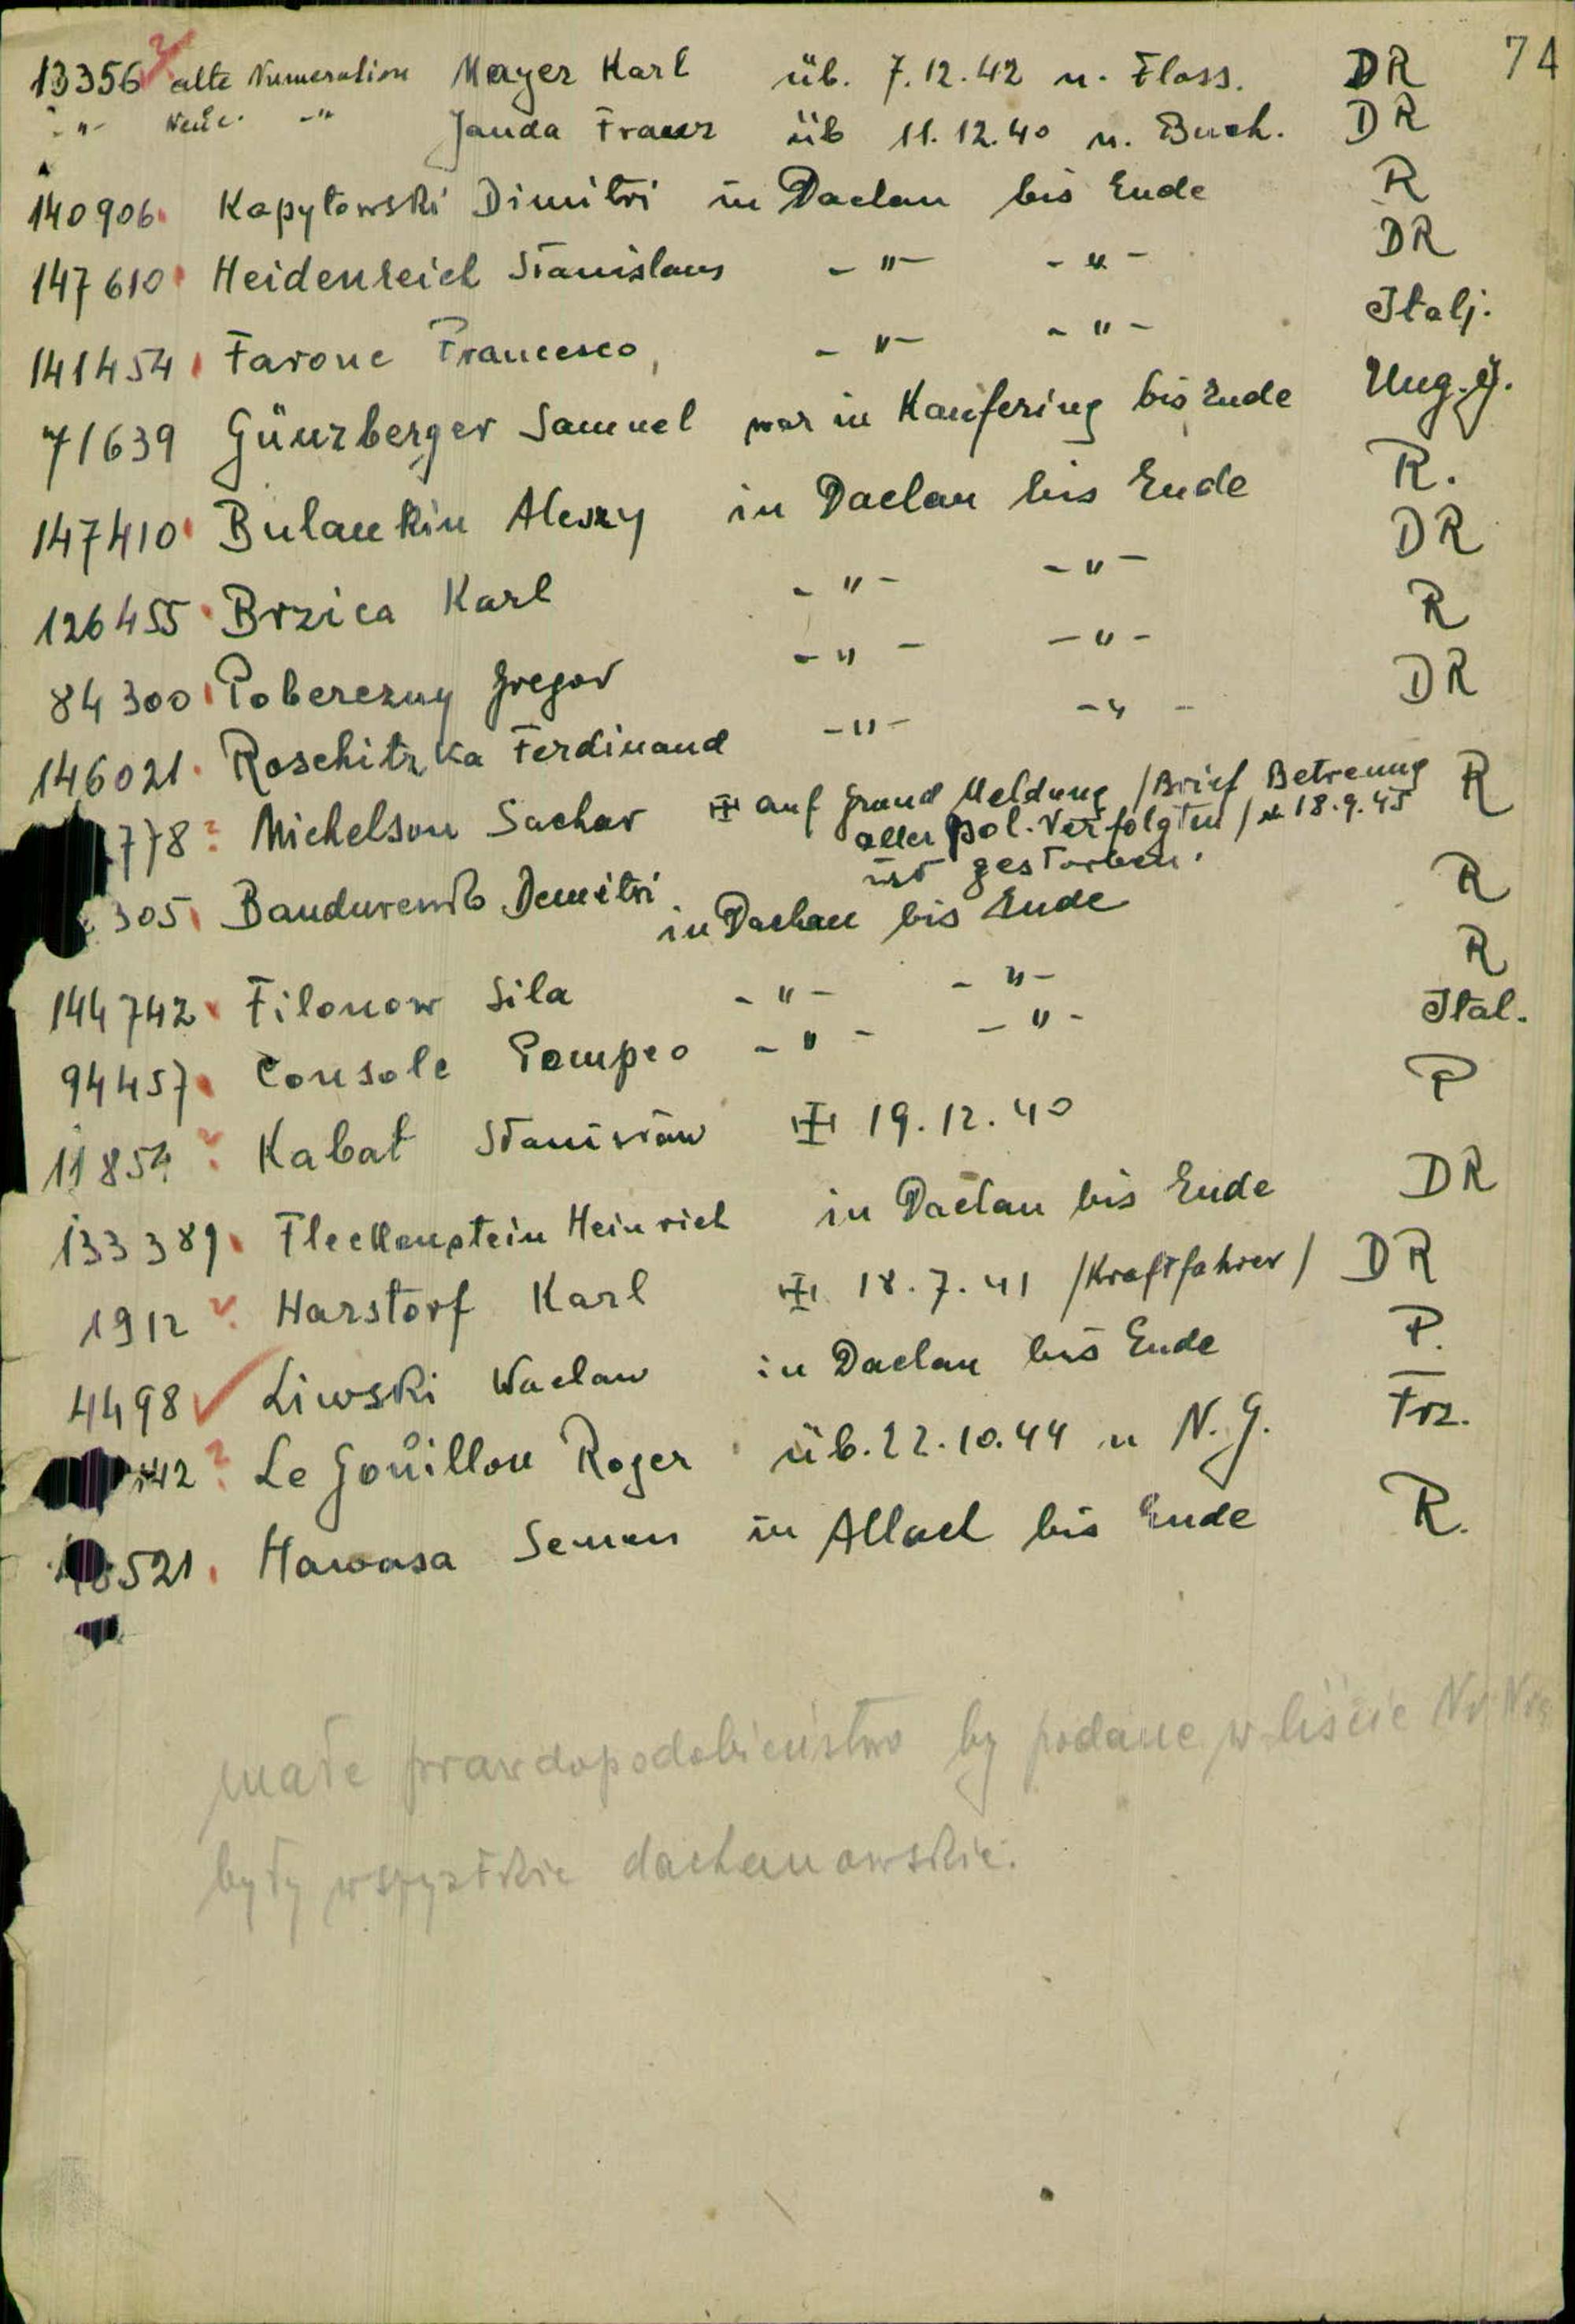 74
13356 ? alte Numeration Mayer Karl üb. 7.12.42 n. Floss. DR
-"- Neue -"- Janda Franz üb 11.12.40 n. Buch. DR
140906 Kapytowski Dimitri in Dachau bis Ende R
147610 Heidenreich Stanislaus -"- -"- DR
141454 Farone Francesco, -"- -"- Italj.
71639 Günzberger Samuel war in Kaufering bis Ende Ung. J.
147410 Bulankin Alexy in Dachau bis Ende R.
126455 Brzica Karl -"- -"- DR
84300 Poberezny Gregor -"- -"- R
146021 Roschitzka Ferdinand -"- -"- DR
778 ? Michelson Sachar ✠ auf Grund Meldung /Brief Betreuung R
aller pol. Verfolgten / 18.9.45
ist gestorben.
305 Demitri in Dachau bis Ende R
144742 Filonow Sila -"- -"- R
94457 Console Pompeo -"- -"- Ital.
11854 ? Kabat Stanisław ✠ 19.12.40 P
133389 Fleckenstein Heinrich in Dachau bis Ende DR
1912 ? Harstorf Karl ✠ 18.7.41 /Kraftfahrer/ DR
4498 ✓ Liwski Waclaw in Dachau bis Ende P.
42 ? Le Gouillou Roger üb. 22.10.44 n N.G. Frz.
521 Hawasa Semen in Allach bis Ende R.
małe prawdopodobieństwo by podane w liście Nr Nr
były wszystkie dachauowskie.